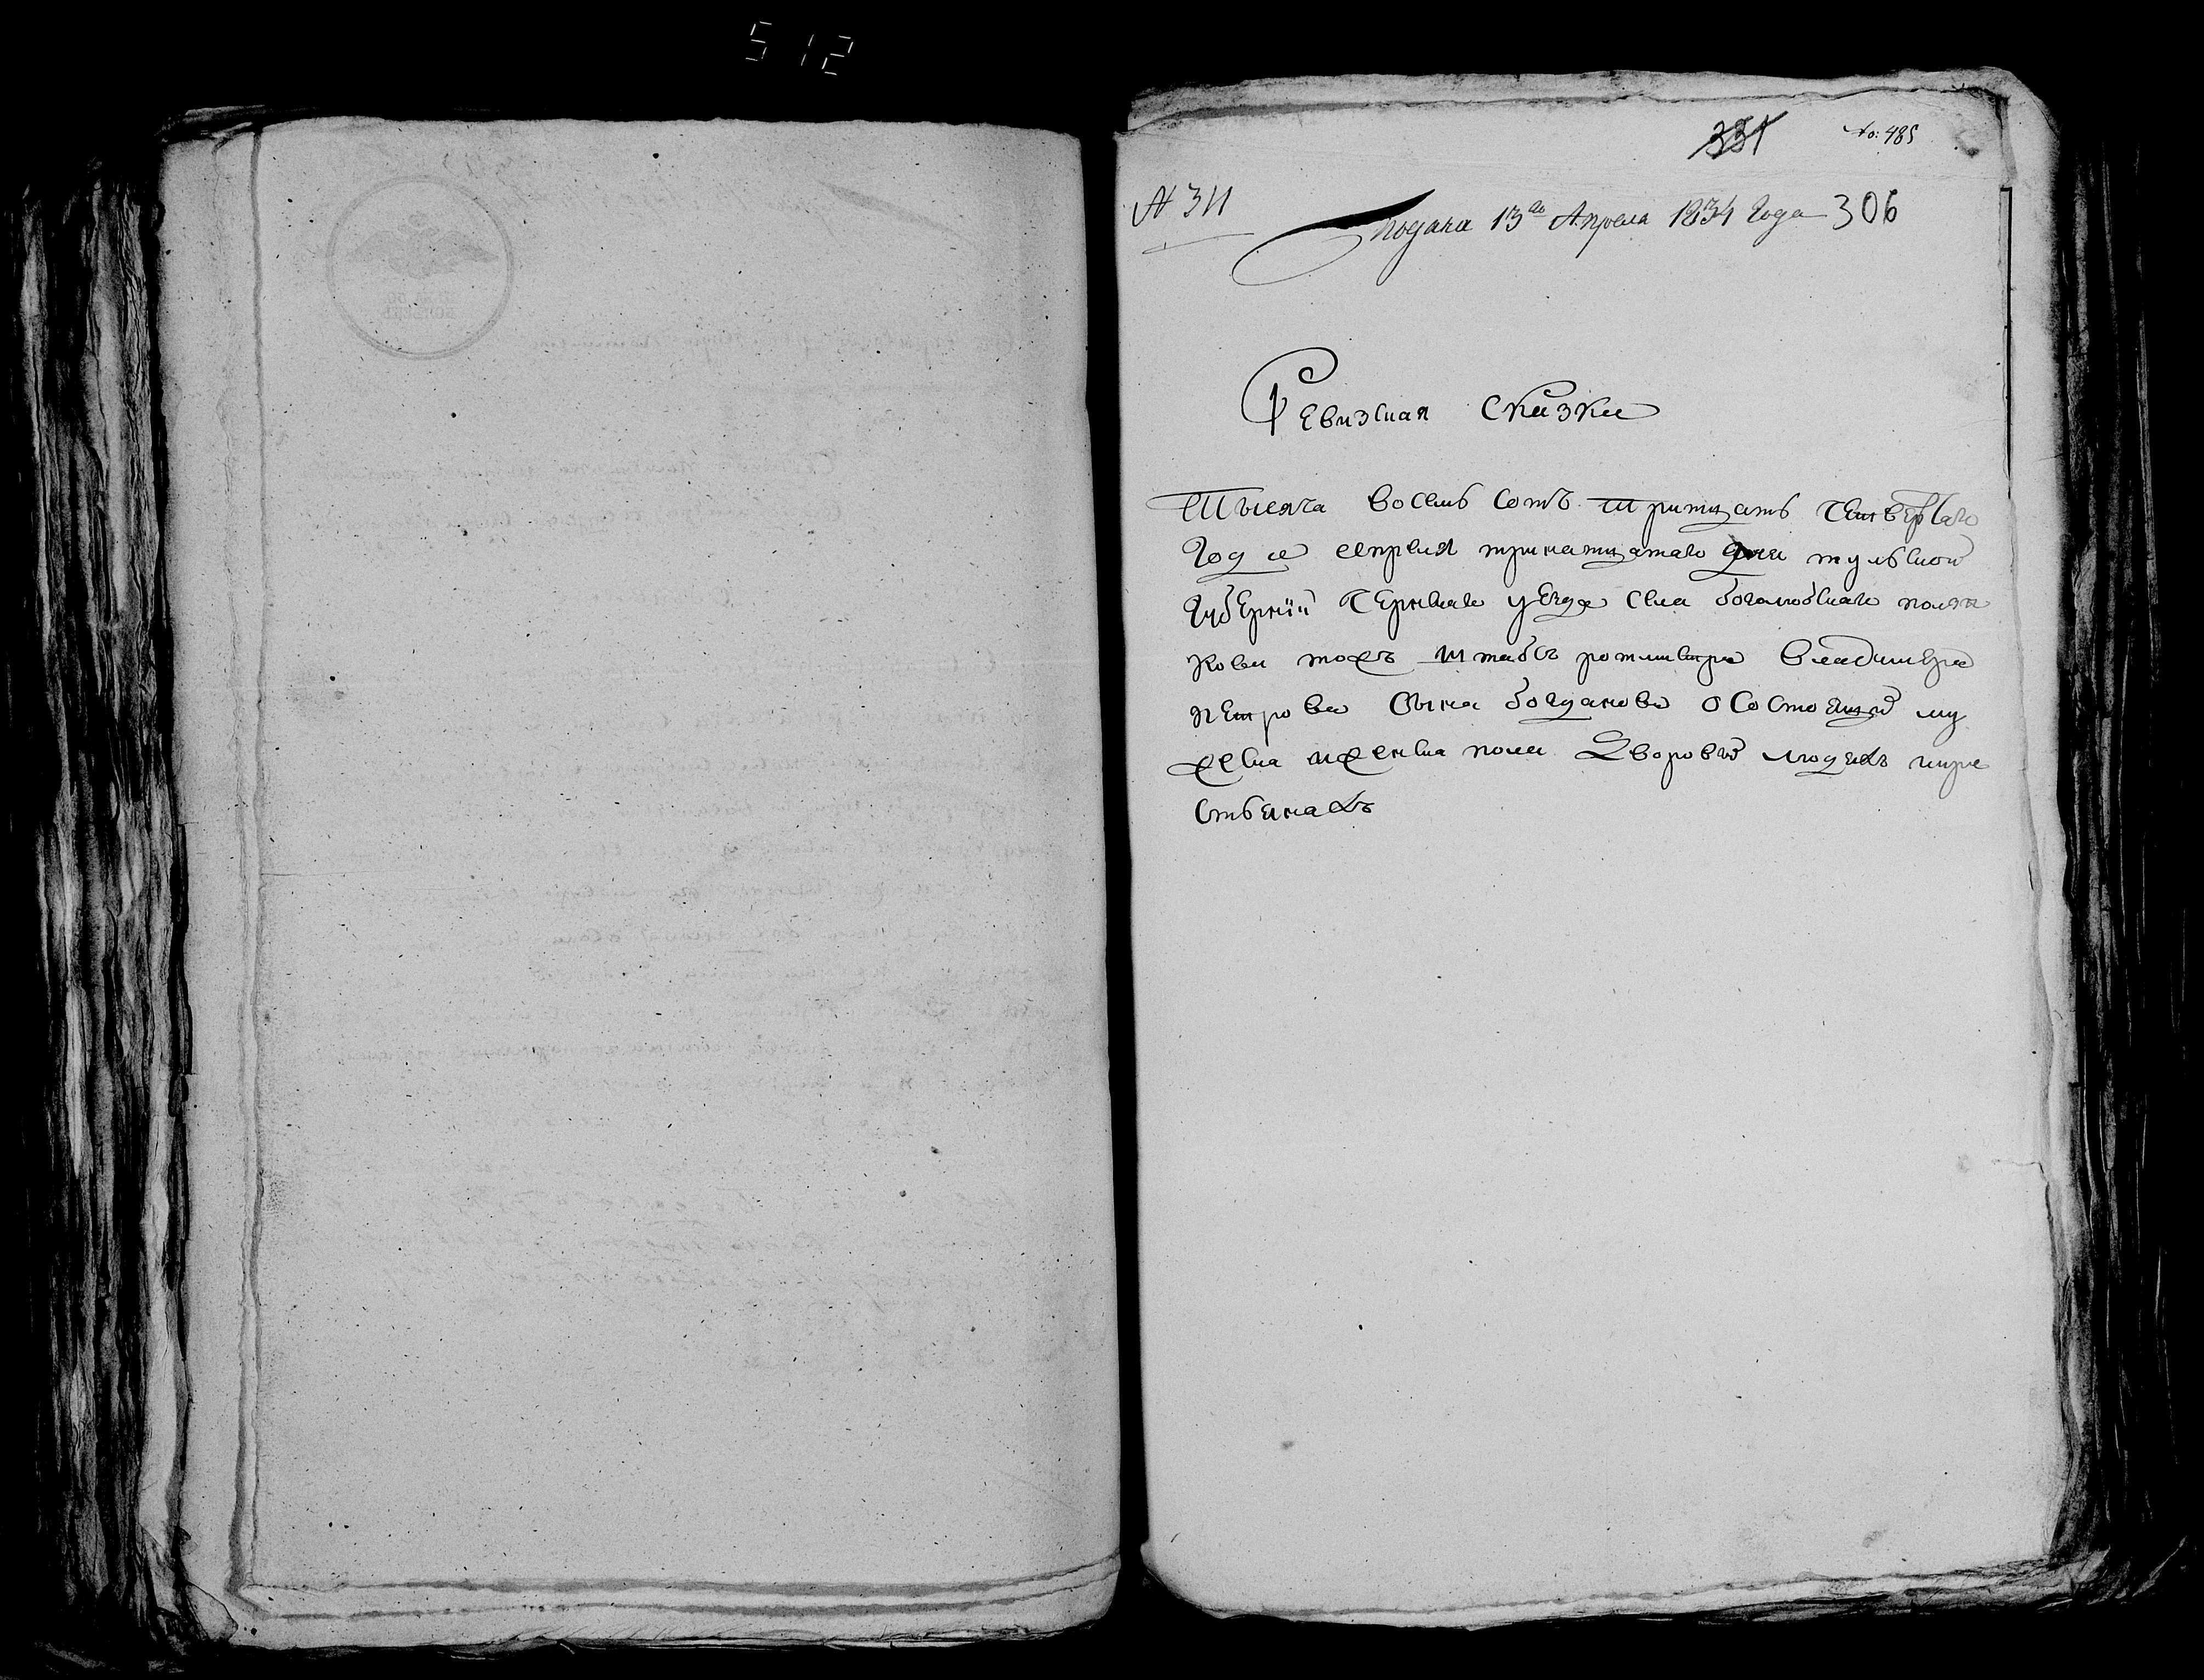 512
331
№: 485
№ 311
Подана 13го Апреля 1834 года 306
Ревизская Сказка
Тысяча восемь сотъ тритцать Четвертаго
года апреля тринатцатаго дня тульской
Губернии Чернскаго уезда села боголюбскаго полян
кова тожъ штабсъ ротмистра владимера
петрова Сына богданова о Состоящихъ му
жеска иженска пола Дворовыхъ людехъ икре
стьянахъ